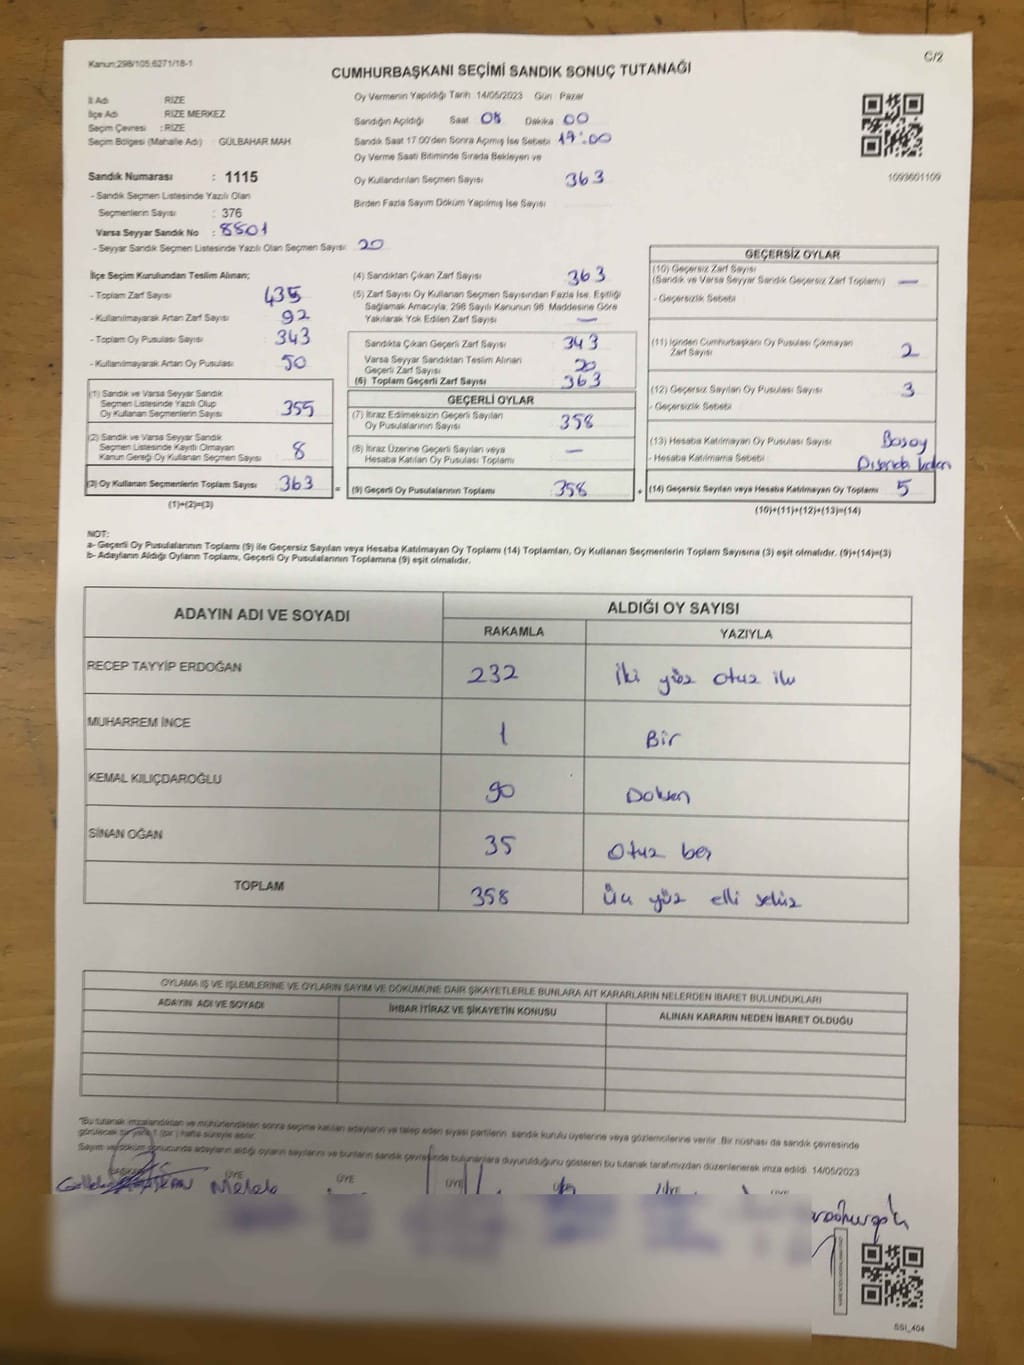 Kanun;298/105;6271/18-1
C/2
CUMHURBAŞKANI SEÇİMİ SANDIK SONUÇ TUTANAĞI
İl Adı RİZE
İlçe Adı RİZE MERKEZ
Seçim Çevresi : RİZE
Seçim Bölgesi (Mahalle Adı) : GÜLBAHAR MAH
Oy Vermenin Yapıldığı Tarih 14/05/2023 Gün : Pazar
Sandığın Açıldığı Saat 08 Dakika 00
Sandık Saat 17:00'den Sonra Açılmış İse Sebebi 17:00
Oy Verme Saati Bitiminde Sırada Bekleyen ve
Oy Kullandırılan Seçmen Sayısı 363
Birden Fazla Sayım Döküm Yapılmış İse Sayısı
1093601109
Sandık Numarası : 1115
- Sandık Seçmen Listesinde Yazılı Olan
Seçmenlerin Sayısı : 376
Varsa Seyyar Sandık No : 8501
- Seyyar Sandık Seçmen Listesinde Yazılı Olan Seçmen Sayısı: 20
İlçe Seçim Kurulundan Teslim Alınan;
- Toplam Zarf Sayısı 435
- Kullanılmayarak Artan Zarf Sayısı 92
- Toplam Oy Pusulası Sayısı 343
- Kullanılmayarak Artan Oy Pusulası 50
(1) Sandık ve Varsa Seyyar Sandık
Seçmen Listesinde Yazılı Olup
Oy Kullanan Seçmenlerin Sayısı 355
(2) Sandık ve Varsa Seyyar Sandık
Seçmen Listesinde Kayıtlı Olmayan
Kanun Gereği Oy Kullanan Seçmen Sayısı 8
(3) Oy Kullanan Seçmenlerin Toplam Sayısı 363 =
(1)+(2)=(3)
(4) Sandıktan Çıkan Zarf Sayısı 363
(5) Zarf Sayısı Oy Kullanan Seçmen Sayısından Fazla İse, Eşitliği
Sağlamak Amacıyla; 298 Sayılı Kanunun 98. Maddesine Göre
Yakılarak Yok Edilen Zarf Sayısı —
Sandıkta Çıkan Geçerli Zarf Sayısı 343
Varsa Seyyar Sandıktan Teslim Alınan
Geçerli Zarf Sayısı 20
(6) Toplam Geçerli Zarf Sayısı 363
GEÇERLİ OYLAR
(7) İtiraz Edilmeksizin Geçerli Sayılan
Oy Pusulalarının Sayısı 358
(8) İtiraz Üzerine Geçerli Sayılan veya
Hesaba Katılan Oy Pusulası Toplamı —
(9) Geçerli Oy Pusulalarının Toplamı 358 +
GEÇERSİZ OYLAR
(10) Geçersiz Zarf Sayısı
(Sandık ve Varsa Seyyar Sandık Geçersiz Zarf Toplamı) —
- Geçersizlik Sebebi
(11) İçinden Cumhurbaşkanı Oy Pusulası Çıkmayan
Zarf Sayısı 2
(12) Geçersiz Sayılan Oy Pusulası Sayısı 3
- Geçersizlik Sebebi
(13) Hesaba Katılmayan Oy Pusulası Sayısı
- Hesaba Katılmama Sebebi
(14) Geçersiz Sayılan veya Hesaba Katılmayan Oy Toplamı 5
(10)+(11)+(12)+(13)=(14)
NOT:
a- Geçerli Oy Pusulalarının Toplamı (9) ile Geçersiz Sayılan veya Hesaba Katılmayan Oy Toplamı (14) Toplamları, Oy Kullanan Seçmenlerin Toplam Sayısına (3) eşit olmalıdır. (9)+(14)=(3)
b- Adayların Aldığı Oyların Toplamı, Geçerli Oy Pusulalarının Toplamına (9) eşit olmalıdır.
ADAYIN ADI VE SOYADI ALDIĞI OY SAYISI
RAKAMLA YAZIYLA
RECEP TAYYİP ERDOĞAN 232 İki yüz otuz iki
MUHARREM İNCE 1 Bir
KEMAL KILIÇDAROĞLU 90 Doksan
SİNAN OĞAN 35 Otuz beş
TOPLAM 358 Üç yüz elli sekiz
OYLAMA İŞ VE İŞLEMLERİNE VE OYLARIN SAYIM VE DÖKÜMÜNE DAİR ŞİKAYETLERLE BUNLARA AİT KARARLARIN NELERDEN İBARET BULUNDUKLARI
ADAYIN ADI VE SOYADI İHBAR İTİRAZ VE ŞİKAYETİN KONUSU ALINAN KARARIN NEDEN İBARET OLDUĞU
"Bu tutanak imzalandıktan ve mühürlendikten sonra seçime katılan adayların ve talep eden siyasi partilerin sandık kurulu üyelerine veya gözlemcilerine verilir. Bir nüshası da sandık çevresinde
görülecek bir yere 1 (bir) hafta süreyle asılır.
Sayım ve döküm sonucunda adayların aldığı oyların sayılarını ve bunların sandık çevresinde bulunanlara duyurulduğunu gösteren bu tutanak tarafımızdan düzenlenerek imza edildi. 14/05/2023
BAŞKAN ÜYE ÜYE ÜYE ÜYE ÜYE
SSI_404